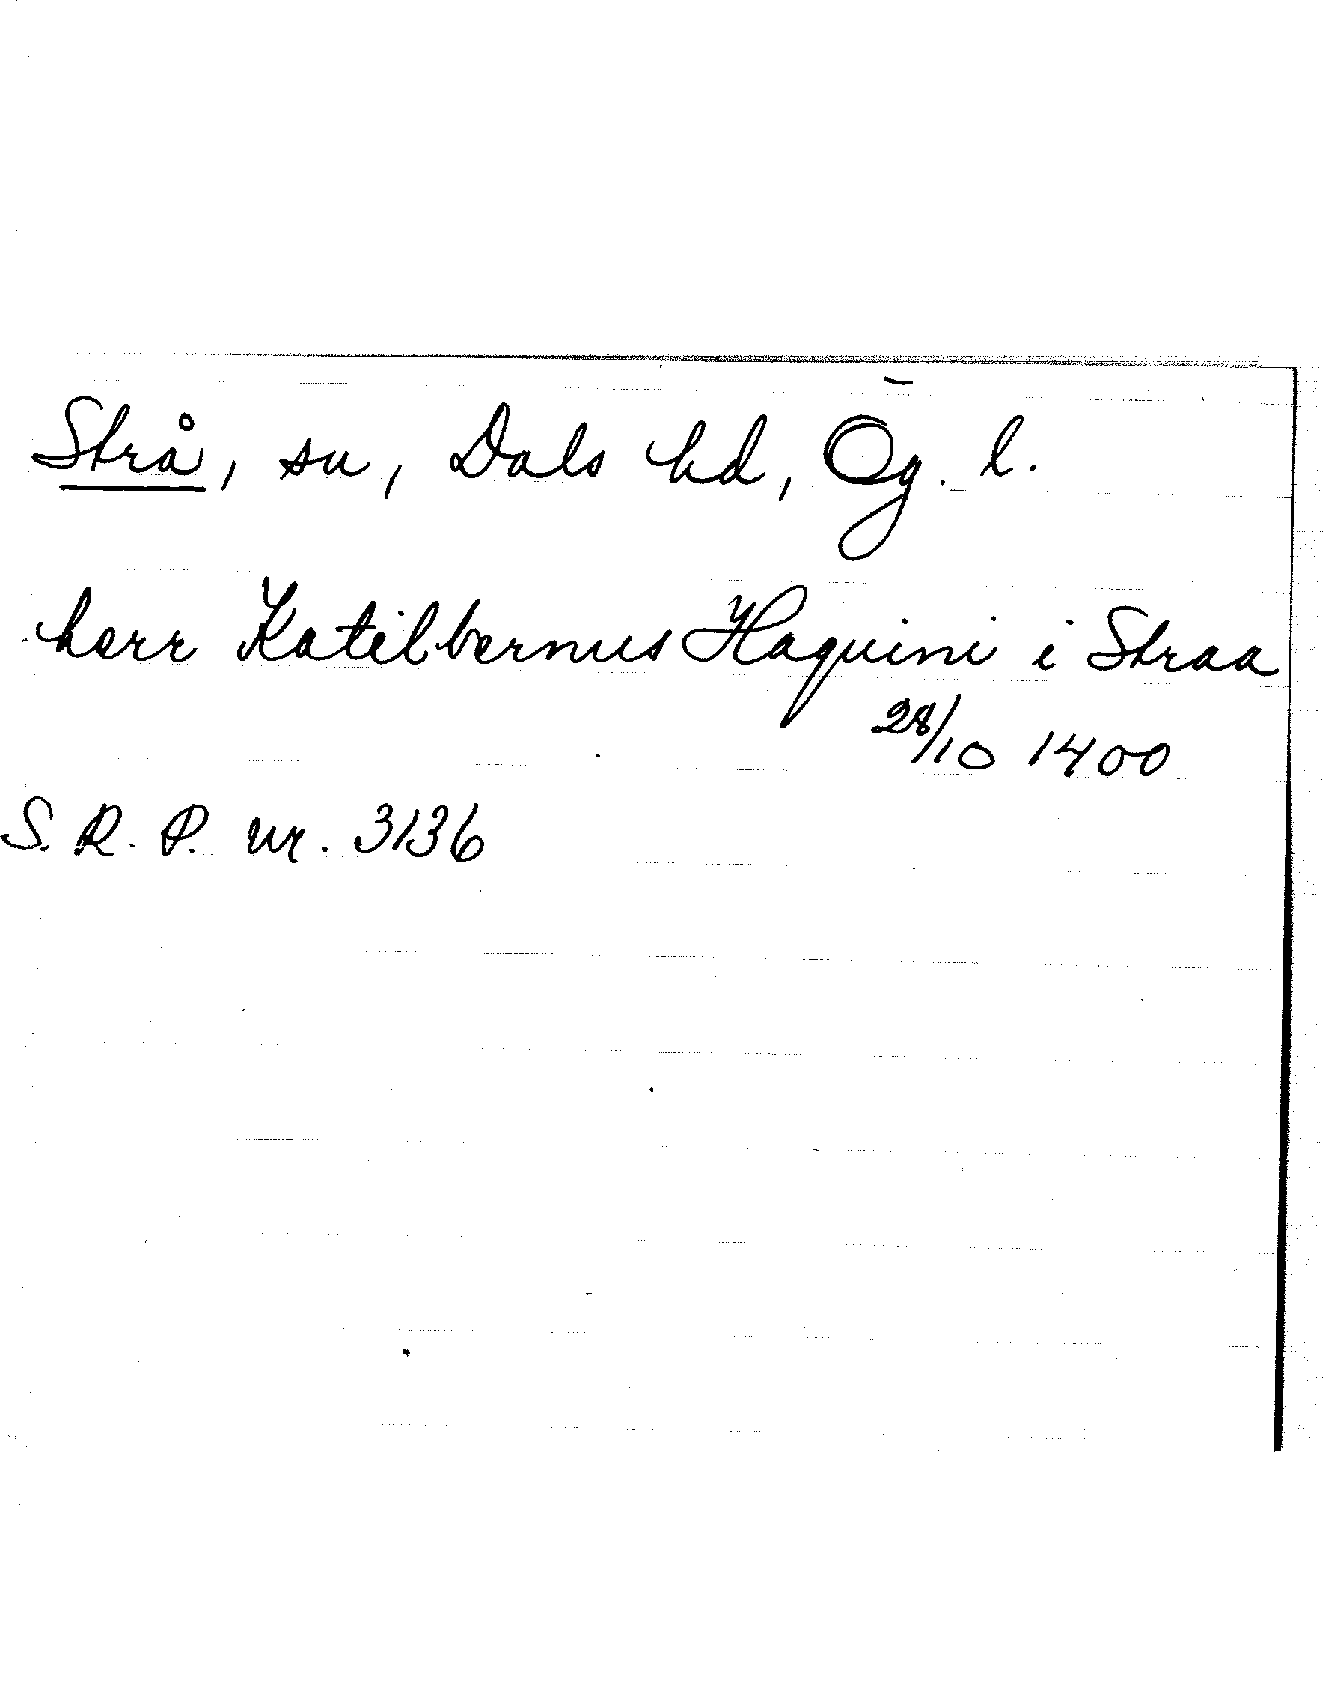 Strå, sn, Dals hd, Ög. l.
herr Katilbernus Haquini i Straa
28/10 1400
S. R. P. nr. 3136